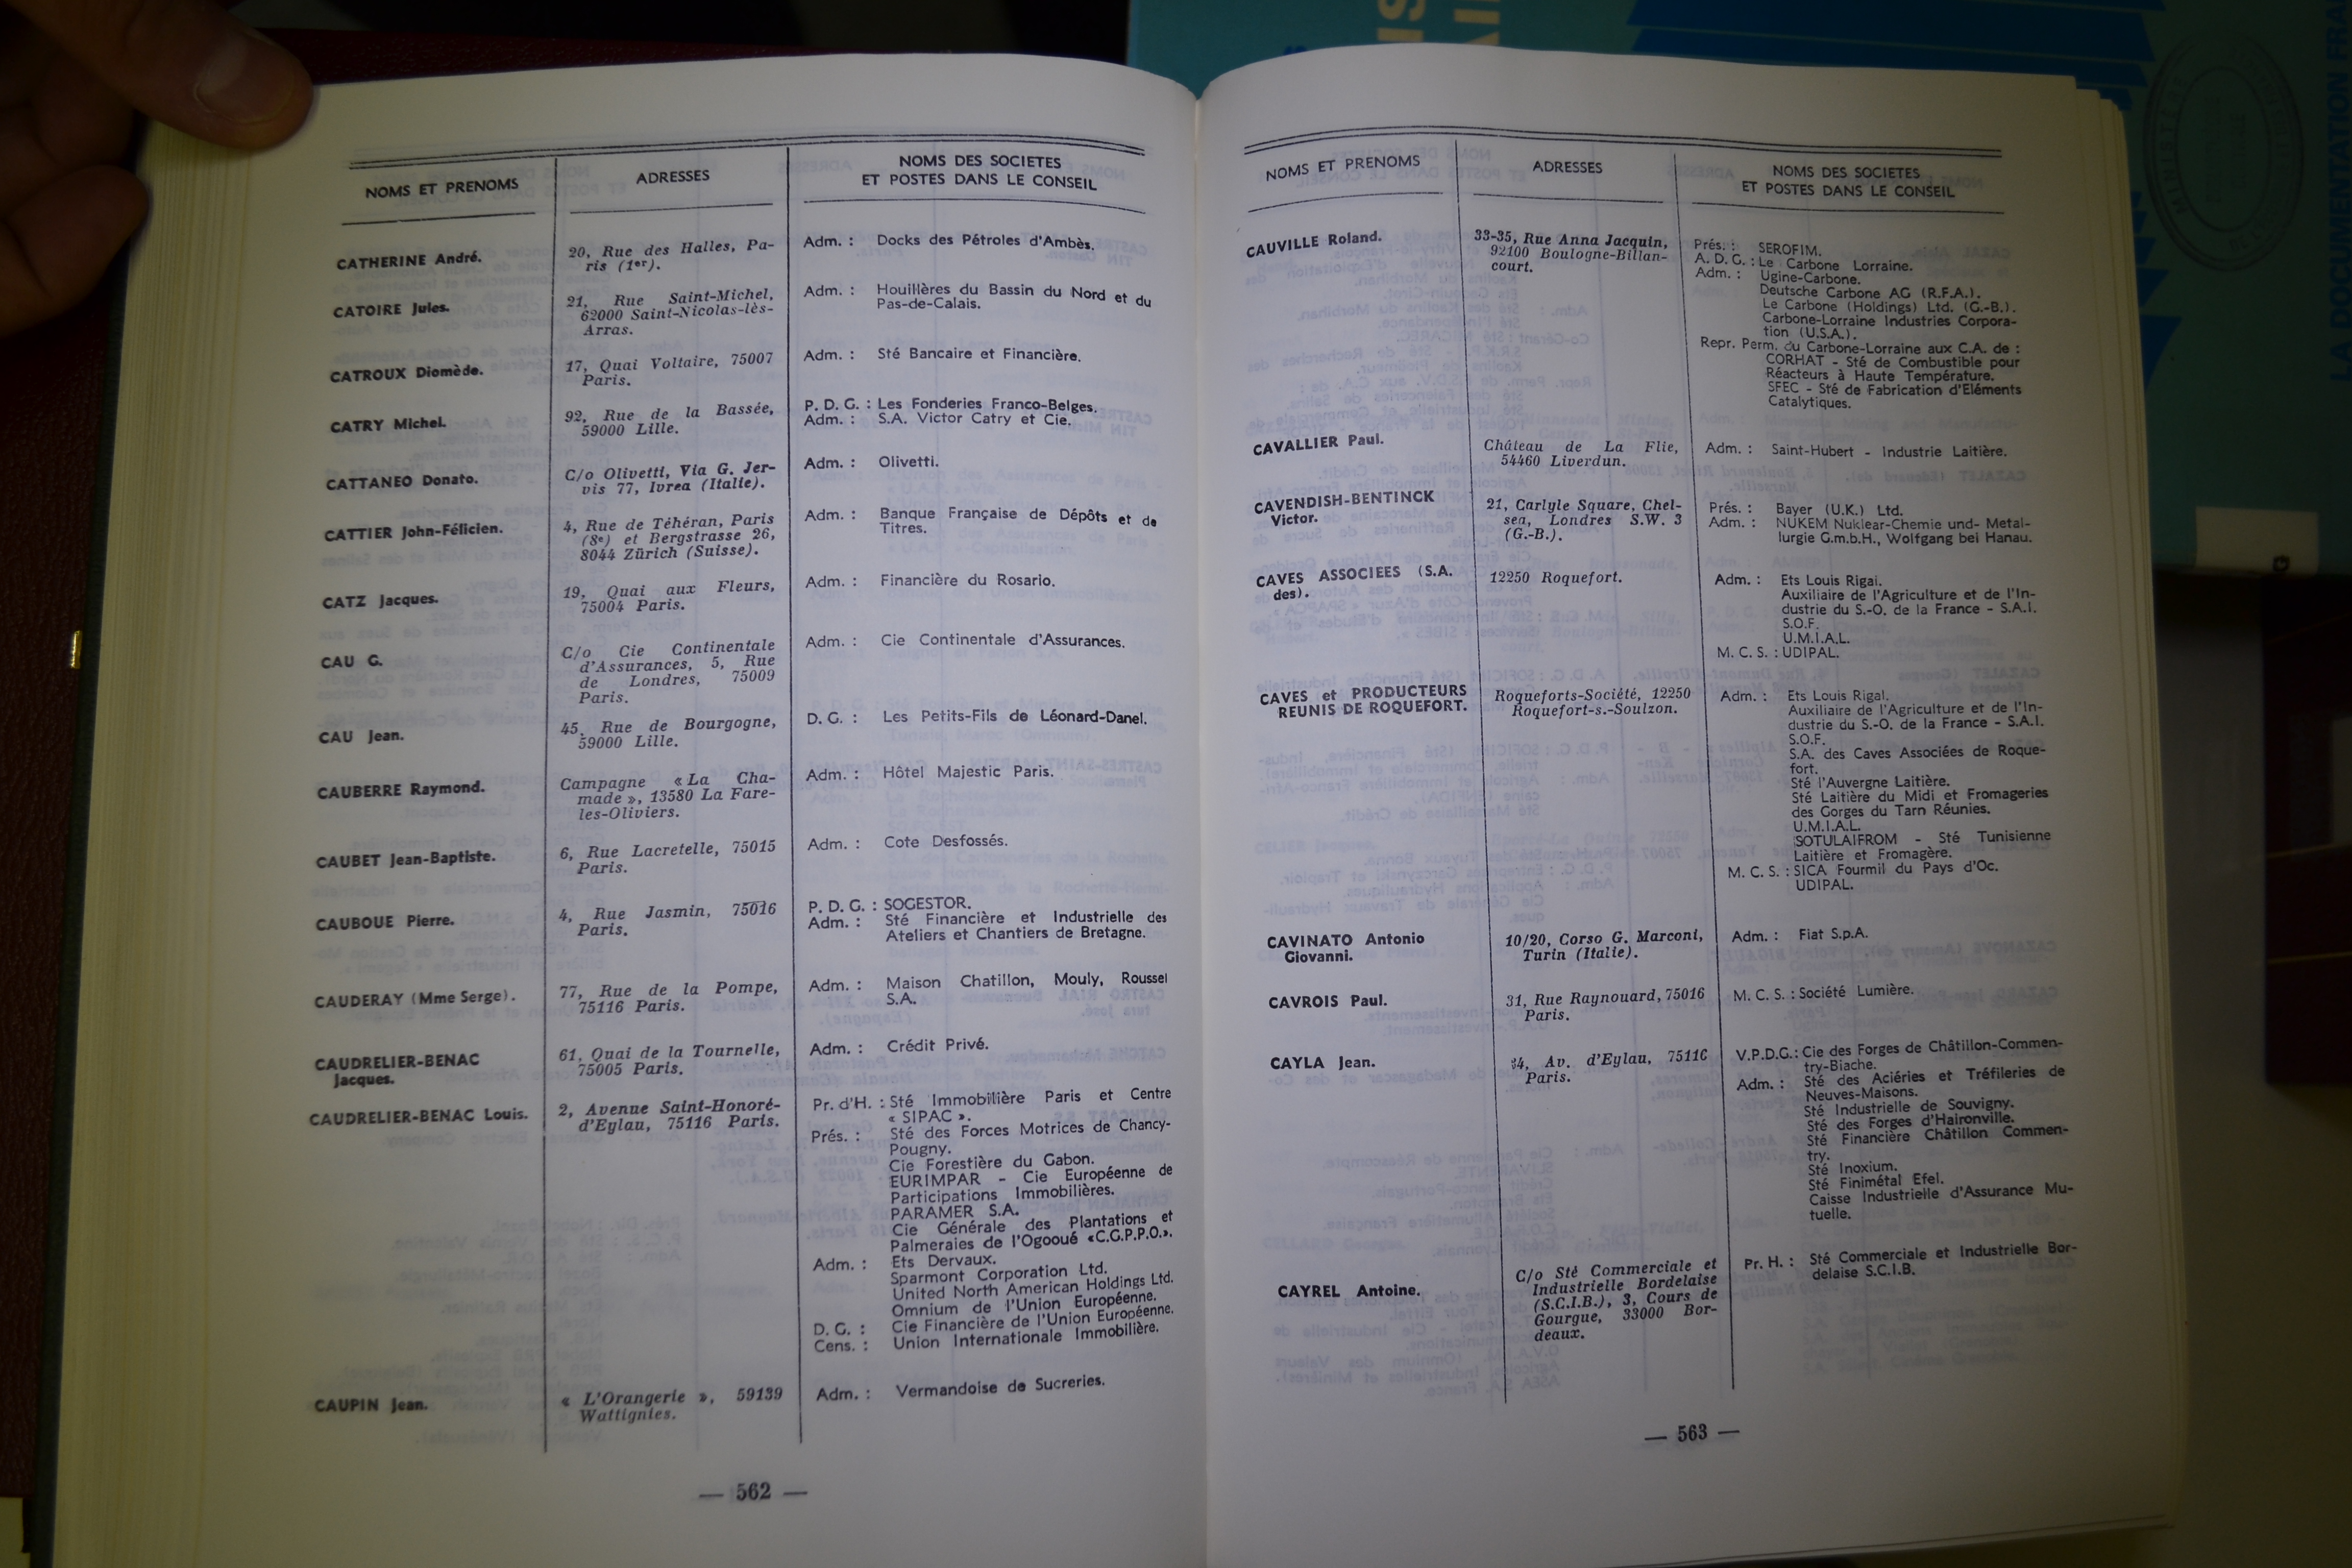 NOMS ET PRENOMS
ADRESSES
NOMS DES SOCIETES
ET POSTES DANS LE CONSEIL
CATHERINE André.
20, Rue des Halles, Pa-
ris (1er).
Adm. : Docks des Pétroles d'Ambès.
CATOIRE Jules.
21, Rue Saint-Michel,
62000 Saint-Nicolas-lès-
Arras.
Adm. : Houillères du Bassin du Nord et du
Pas-de-Calais.
CATROUX Diomède.
17, Quai Voltaire, 75007
Paris.
Adm. : Sté Bancaire et Financière.
CATRY Michel.
92, Rue de la Bassée,
59000 Lille.
P. D. G. : Les Fonderies Franco-Belges.
Adm. : S.A. Victor Catry et Cie.
CATTANEO Donato.
C/o Olivetti, Via G. Jer-
vis 77, Ivrea (Italie).
Adm. : Olivetti.
CATTIER John-Félicien.
4, Rue de Téhéran, Paris
(8e) et Bergstrasse 26,
8044 Zürich (Suisse).
Adm. : Banque Française de Dépôts et de
Titres.
CATZ Jacques.
19, Quai aux Fleurs,
75004 Paris.
Adm. : Financière du Rosario.
CAU G.
C/o Cie Continentale
d'Assurances, 5, Rue
de Londres, 75009
Paris.
Adm. : Cie Continentale d'Assurances.
CAU Jean.
45, Rue de Bourgogne,
59000 Lille.
D. G. : Les Petits-Fils de Léonard-Danel.
CAUBERRE Raymond.
Campagne « La Cha-
made », 13580 La Fare-
les-Oliviers.
Adm. : Hôtel Majestic Paris.
CAUBET Jean-Baptiste.
6, Rue Lacretelle, 75015
Paris.
Adm. : Cote Desfossés.
CAUBOUE Pierre.
4, Rue Jasmin, 75016
Paris.
P. D. G. : SOGESTOR.
Adm. : Sté Financière et Industrielle des
Ateliers et Chantiers de Bretagne.
CAUDERAY (Mme Serge).
77, Rue de la Pompe,
75116 Paris.
Adm. : Maison Chatillon, Mouly, Roussel
S.A.
CAUDRELIER-BENAC
Jacques.
61, Quai de la Tournelle,
75005 Paris.
Adm. : Crédit Privé.
CAUDRELIER-BENAC Louis.
2, Avenue Saint-Honoré-
d'Eylau, 75116 Paris.
Pr. d'H. : Sté Immobilière Paris et Centre
« SIPAC ».
Prés. : Sté des Forces Motrices de Chancy-
Pougny.
Cie Forestière du Gabon.
EURIMPAR - Cie Européenne de
Participations Immobilières.
PARAMER S.A.
Cie Générale des Plantations et
Palmeraies de l'Ogooué «C.G.P.P.O.».
Adm. : Ets Dervaux.
Sparmont Corporation Ltd.
United North American Holdings Ltd.
Omnium de l'Union Européenne.
D. G. : Cie Financière de l'Union Européenne.
Cens. : Union Internationale Immobilière.
CAUPIN Jean.
« L'Orangerie », 59139
Wattignies.
Adm. : Vermandoise de Sucreries.
— 562 —
NOMS ET PRENOMS
ADRESSES
NOMS DES SOCIETES
ET POSTES DANS LE CONSEIL
CAUVILLE Roland.
33-35, Rue Anna Jacquin,
92100 Boulogne-Billan-
court.
Prés. : SEROFIM.
A. D. G. : Le Carbone Lorraine.
Adm. : Ugine-Carbone.
Deutsche Carbone AG (R.F.A.).
Le Carbone (Holdings) Ltd. (G.-B.).
Carbone-Lorraine Industries Corpora-
tion (U.S.A.).
Repr. Perm. du Carbone-Lorraine aux C.A. de :
CORHAT - Sté de Combustible pour
Réacteurs à Haute Température.
SFEC - Sté de Fabrication d'Eléments
Catalytiques.
CAVALLIER Paul.
Château de La Flie,
54460 Liverdun.
Adm. : Saint-Hubert - Industrie Laitière.
CAVENDISH-BENTINCK
Victor.
21, Carlyle Square, Chel-
sea, Londres S.W. 3
(G.-B.).
Prés. : Bayer (U.K.) Ltd.
Adm. : NUKEM Nuklear-Chemie und- Metal-
lurgie G.m.b.H., Wolfgang bei Hanau.
CAVES ASSOCIEES (S.A.
des).
12250 Roquefort.
Adm. : Ets Louis Rigal.
Auxiliaire de l'Agriculture et de l'In-
dustrie du S.-O. de la France - S.A.I.
S.O.F.
U.M.I.A.L.
M. C. S. : UDIPAL.
CAVES et PRODUCTEURS
REUNIS DE ROQUEFORT.
Roqueforts-Société, 12250
Roquefort-s.-Soulzon.
Adm. : Ets Louis Rigal.
Auxiliaire de l'Agriculture et de l'In-
dustrie du S.-O. de la France - S.A.I.
S.O.F.
S.A. des Caves Associées de Roque-
fort.
Sté l'Auvergne Laitière.
Sté Laitière du Midi et Fromageries
des Gorges du Tarn Réunies.
U.M.I.A.L.
SOTULAIFROM - Sté Tunisienne
Laitière et Fromagère.
M. C. S. : SICA Fourmil du Pays d'Oc.
UDIPAL.
CAVINATO Antonio
Giovanni.
10/20, Corso G. Marconi,
Turin (Italie).
Adm. : Fiat S.p.A.
CAVROIS Paul.
31, Rue Raynouard, 75016
Paris.
M. C. S. : Société Lumière.
CAYLA Jean.
34, Av. d'Eylau, 75116
Paris.
V.P.D.G. : Cie des Forges de Châtillon-Commen-
try-Biache.
Adm. : Sté des Aciéries et Tréfileries de
Neuves-Maisons.
Sté Industrielle de Souvigny.
Sté des Forges d'Haironville.
Sté Financière Châtillon Commen-
try.
Sté Inoxium.
Sté Finimétal Efel.
Caisse Industrielle d'Assurance Mu-
tuelle.
CAYREL Antoine.
C/o Sté Commerciale et
Industrielle Bordelaise
(S.C.I.B.), 3, Cours de
Gourgue, 33000 Bor-
deaux.
Pr. H. : Sté Commerciale et Industrielle Bor-
delaise S.C.I.B.
— 563 —
LA DOCUMENTATION